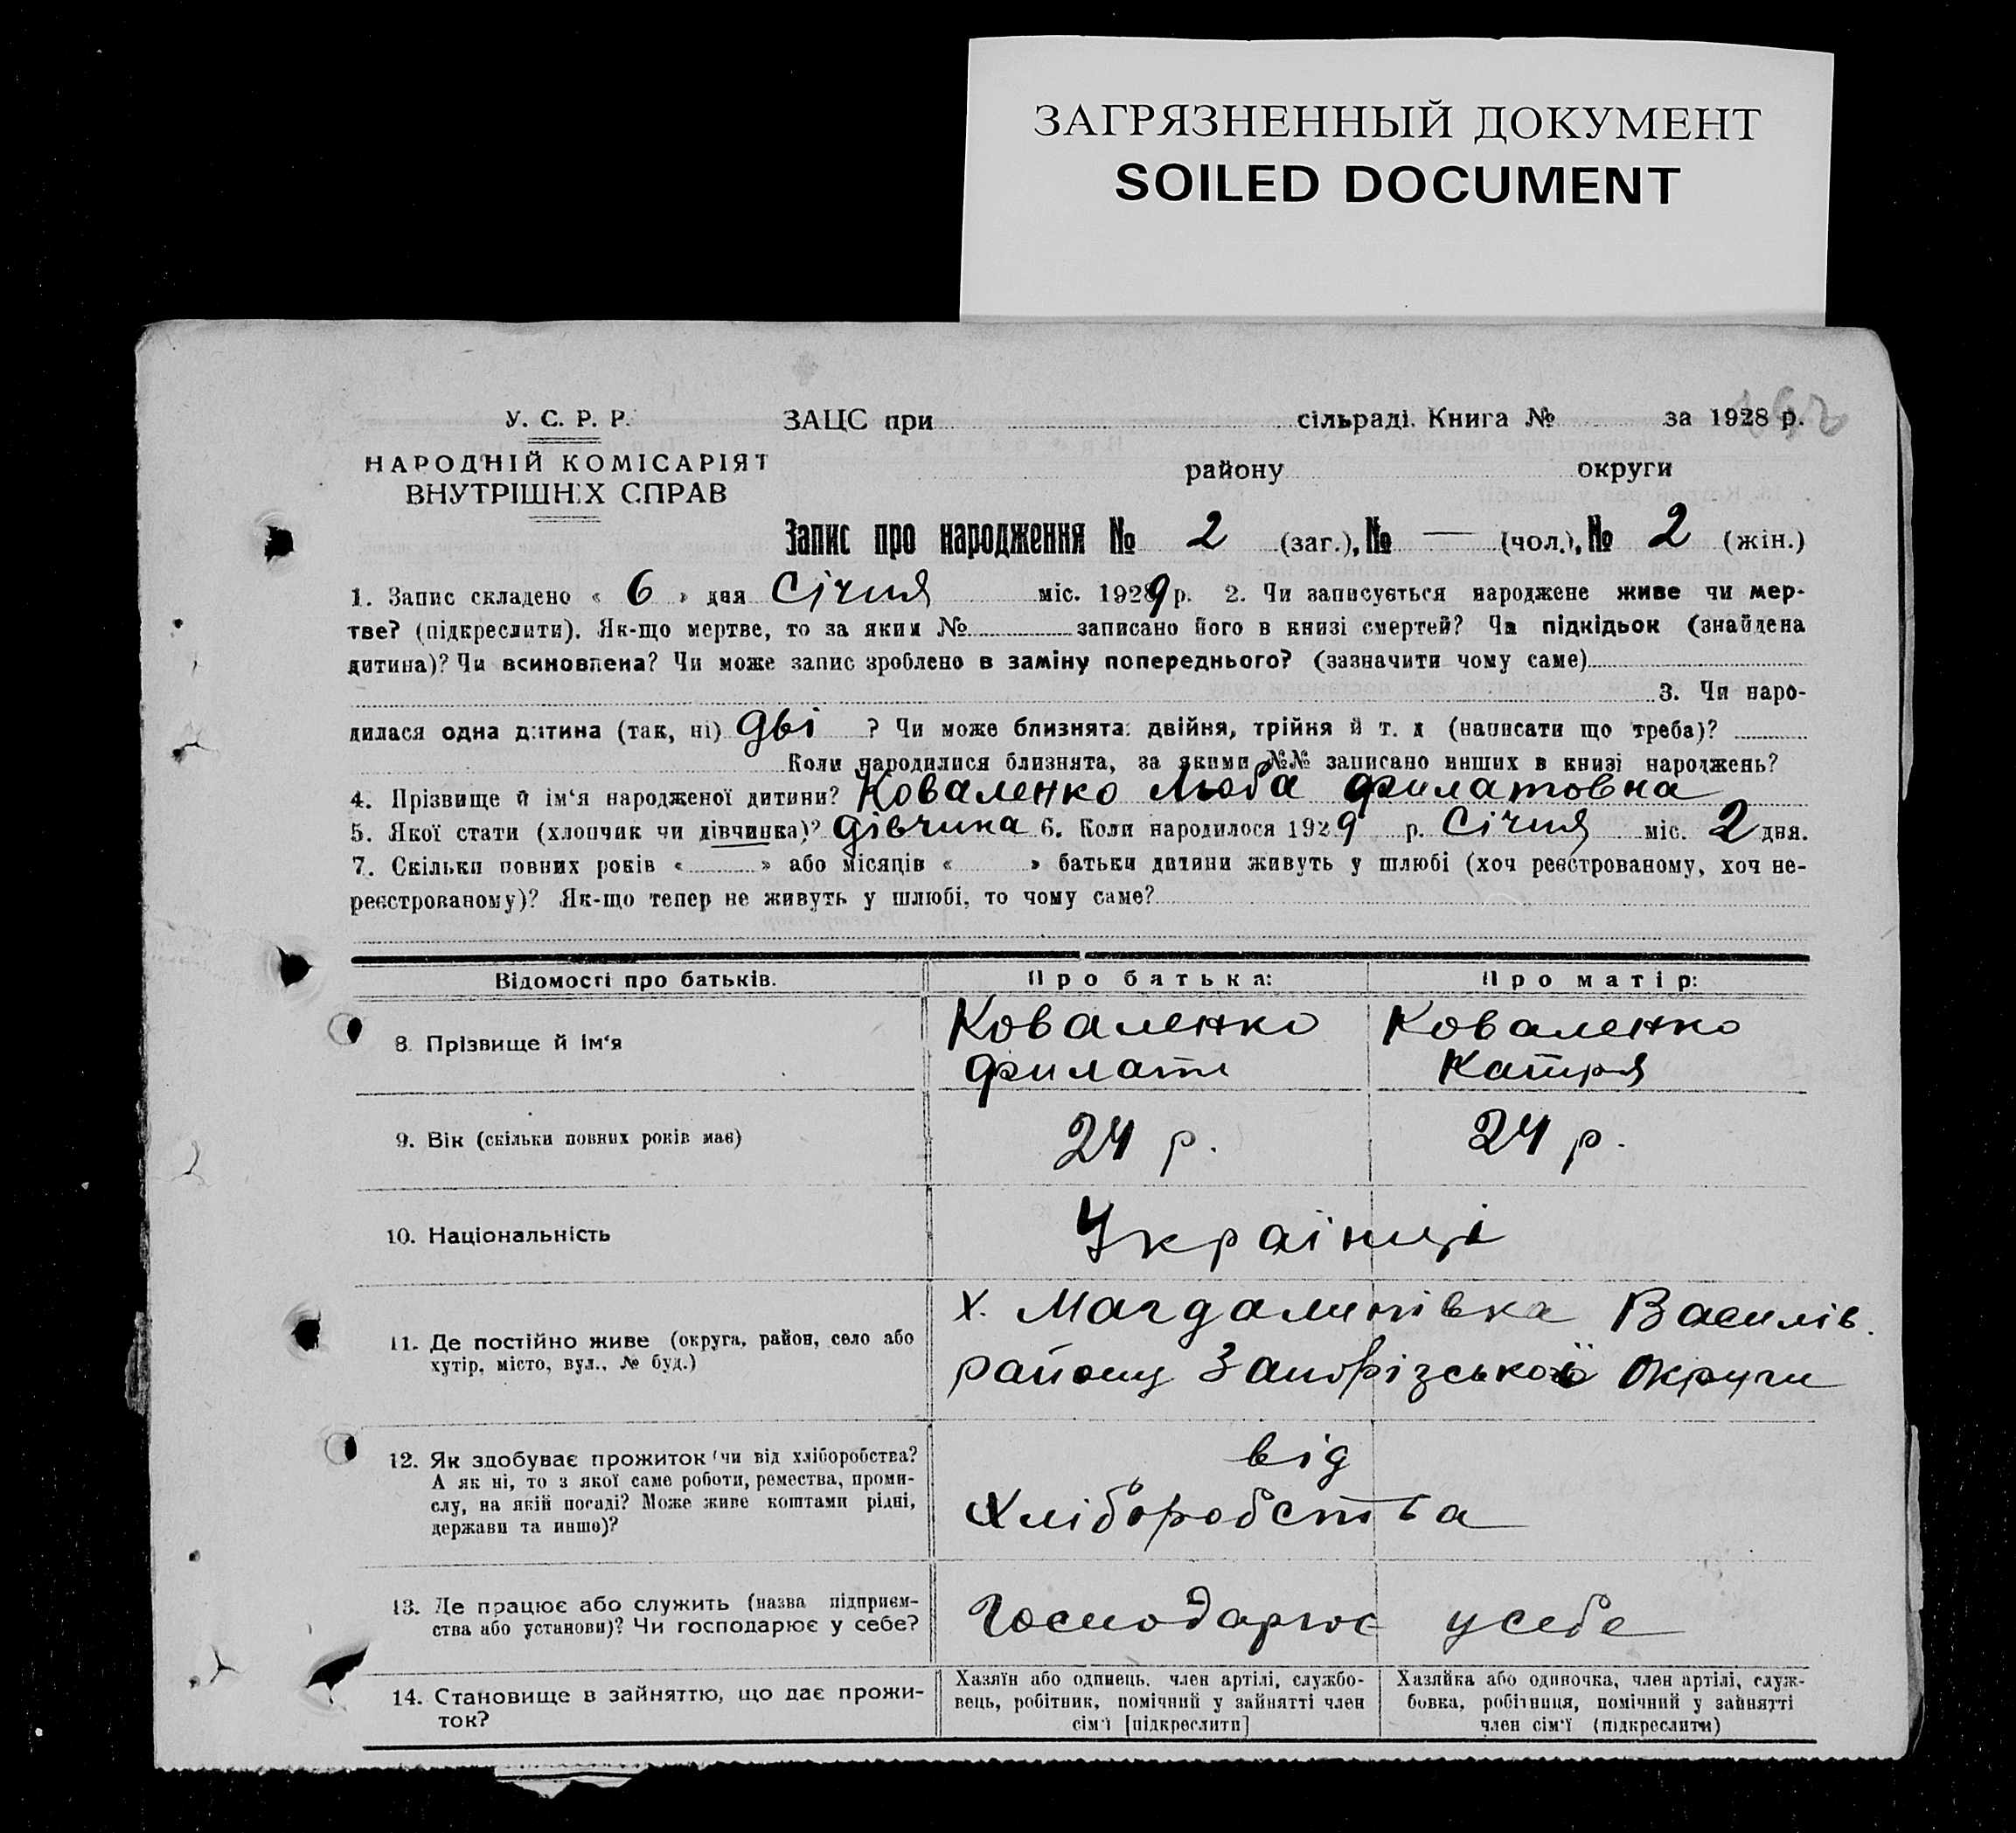 ЗАГРЯЗНЕННЫЙ ДОКУМЕНТ
SOILED DOCUMENT
У. С. Р. Р. ЗАЦС при сільраді. Книга № за 1928 р.
НАРОДНІЙ КОМІСАРІЯТ району округи
ВНУТРІШНІХ СПРАВ
Запис про народження № 2 (заг.), № — (чол.), № 2 (жін.)
1. Запис складено « 6 » дня Січня міс. 1929 р. 2. Чи записується народжене живе чи мер-
тве? (підкреслити). Як-що мертве, то за яким № записано його в книзі смертей? Чи підкідьок (знайдена
дитина)? Чи всиновлена? Чи може запис зроблено в заміну попереднього? (зазначити чому саме)
3. Чи наро-
дилася одна дитина (так, ні) дві ? Чи може близнята: двійня, трійня й т. д (написати що треба)?
Коли народилися близнята, за якими №№ записано инших в книзі народжень?
4. Прізвище й ім‘я народженої дитини? Коваленко Люба Филатовна
5. Якої стати (хлопчик чи дівчинка)? дівчина 6. Коли народилося 1929 р. Січня міс. 2 дня.
7. Скільки повних років « » або місяців « » батьки дитини живуть у шлюбі (хоч реєстрованому, хоч не-
реєстрованому)? Як-що тепер не живуть у шлюбі, то чому саме?
Відомості про батьків. Про батька: Про матір:
8. Прізвище й ім‘я Коваленко Филат Коваленко Катря
9. Вік (скільки повних років має) 24 р. 24 р.
10. Національність Українці
11. Де постійно живе (округа, район, село або
хутір, місто, вул., № буд.)
х. Магдалинівка Василів.
району Запорізської Округи
12. Як здобуває прожиток (чи від хліборобства?
А як ні, то з якої саме роботи, ремества, проми-
слу, на якій посаді? Може живе коштами рідні,
держави та инше)?
від
Хліборобства
13. Де працює або служить (назва підприєм-
ства або установи)? Чи господарює у себе?
Господарює у себе
14. Становище в зайняттю, що дає прожи-
ток?
Хазяїн або одинець, член артілі, службо-
вець, робітник, помічний у зайнятті член
сім‘ї [підкреслити]
Хазяйка або одиночка, член артілі, служ-
бовка, робітниця, помічний у зайнятті
член сім‘ї (підкреслити)